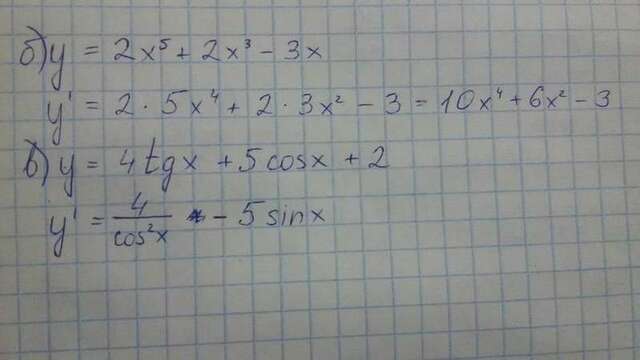 б) y = 2x⁵ + 2x³ - 3x
y' = 2 · 5x⁴ + 2 · 3x² - 3 = 10x⁴ + 6x² - 3
в) y = 4 tg x + 5 cos x + 2
y' = 4/cos²x - 5 sin x